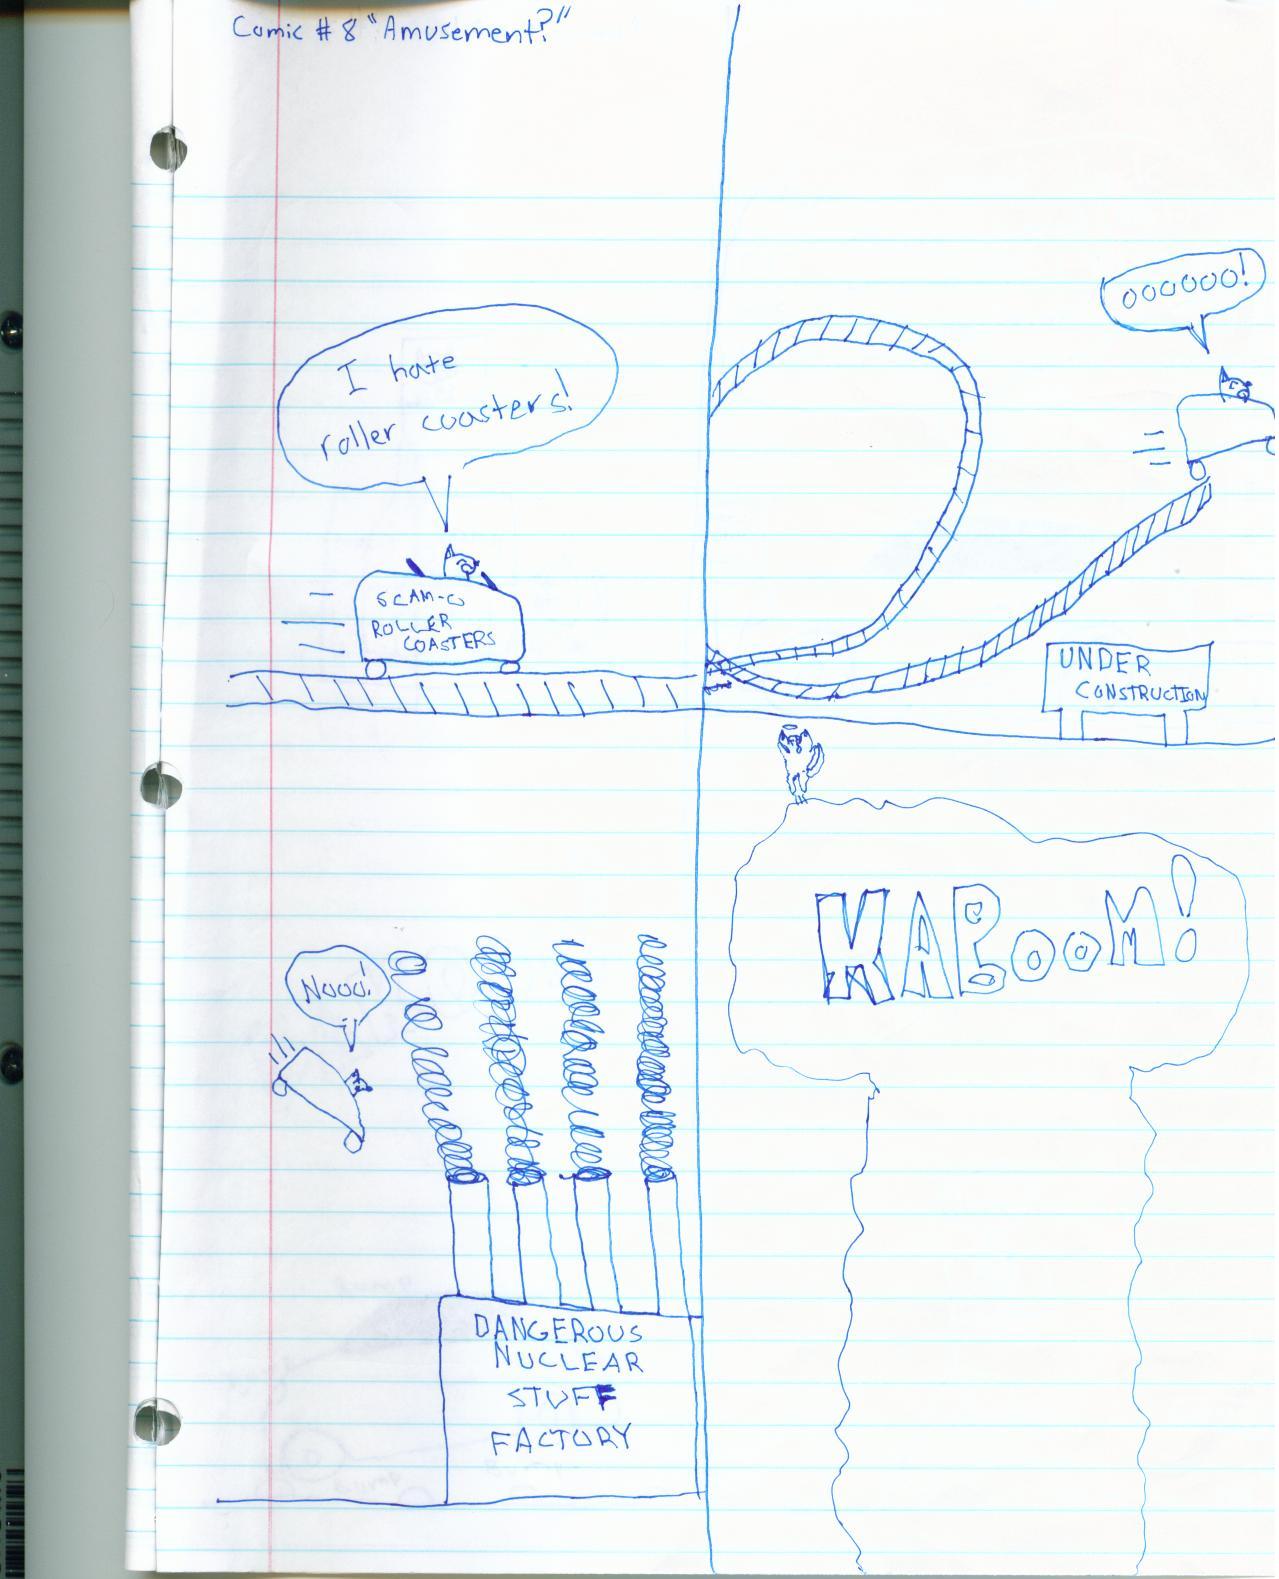 Comic # 8 "Amusement?"
I hate
roller coasters!
SCAM-O
ROLLER
COASTERS
OOOOOO!
UNDER
CONSTRUCTION
Nooo!
DANGEROUS
NUCLEAR
STUFF
FACTORY
KABOOM!